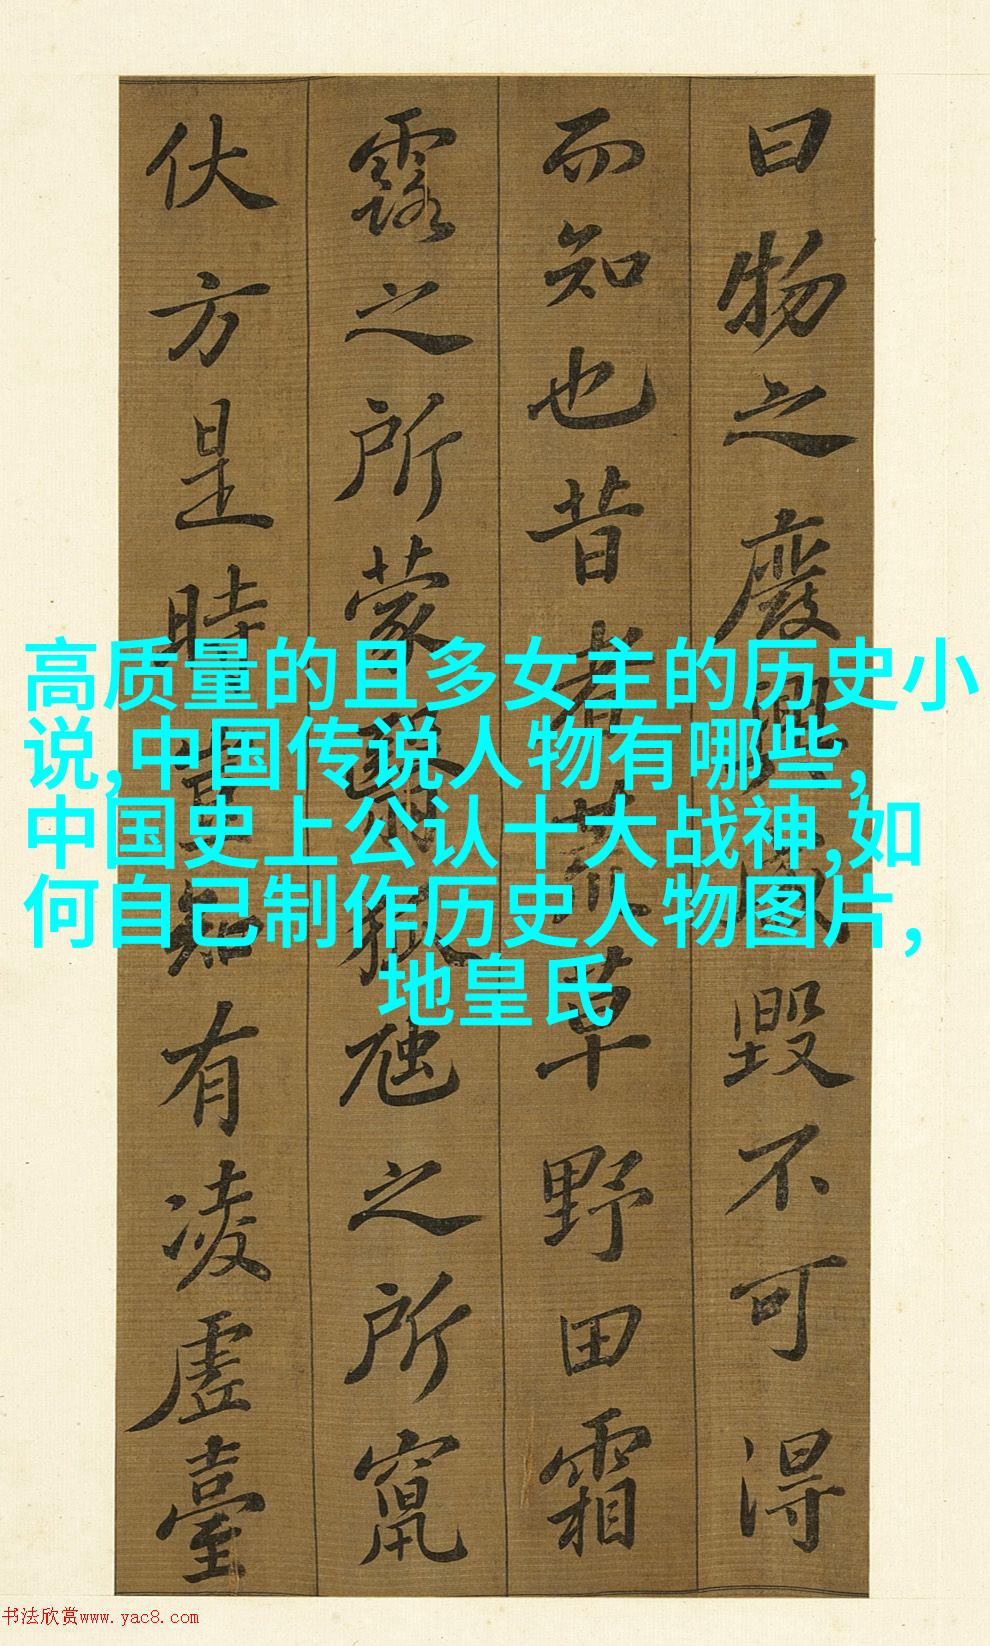 曰物之廢興成毀不可得
而知也昔者荒草野田霜
露之所蒙翳狐虺之所竄
伏方是時豈知有凌虛臺
高质量的且多女主的历史小
说,中国传说人物有哪些,
中国史上公认十大战神,如
何自己制作历史人物图片,
地皇氏
书法欣赏www.yac8.com